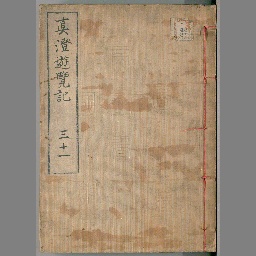 真澄遊覧記 三十一